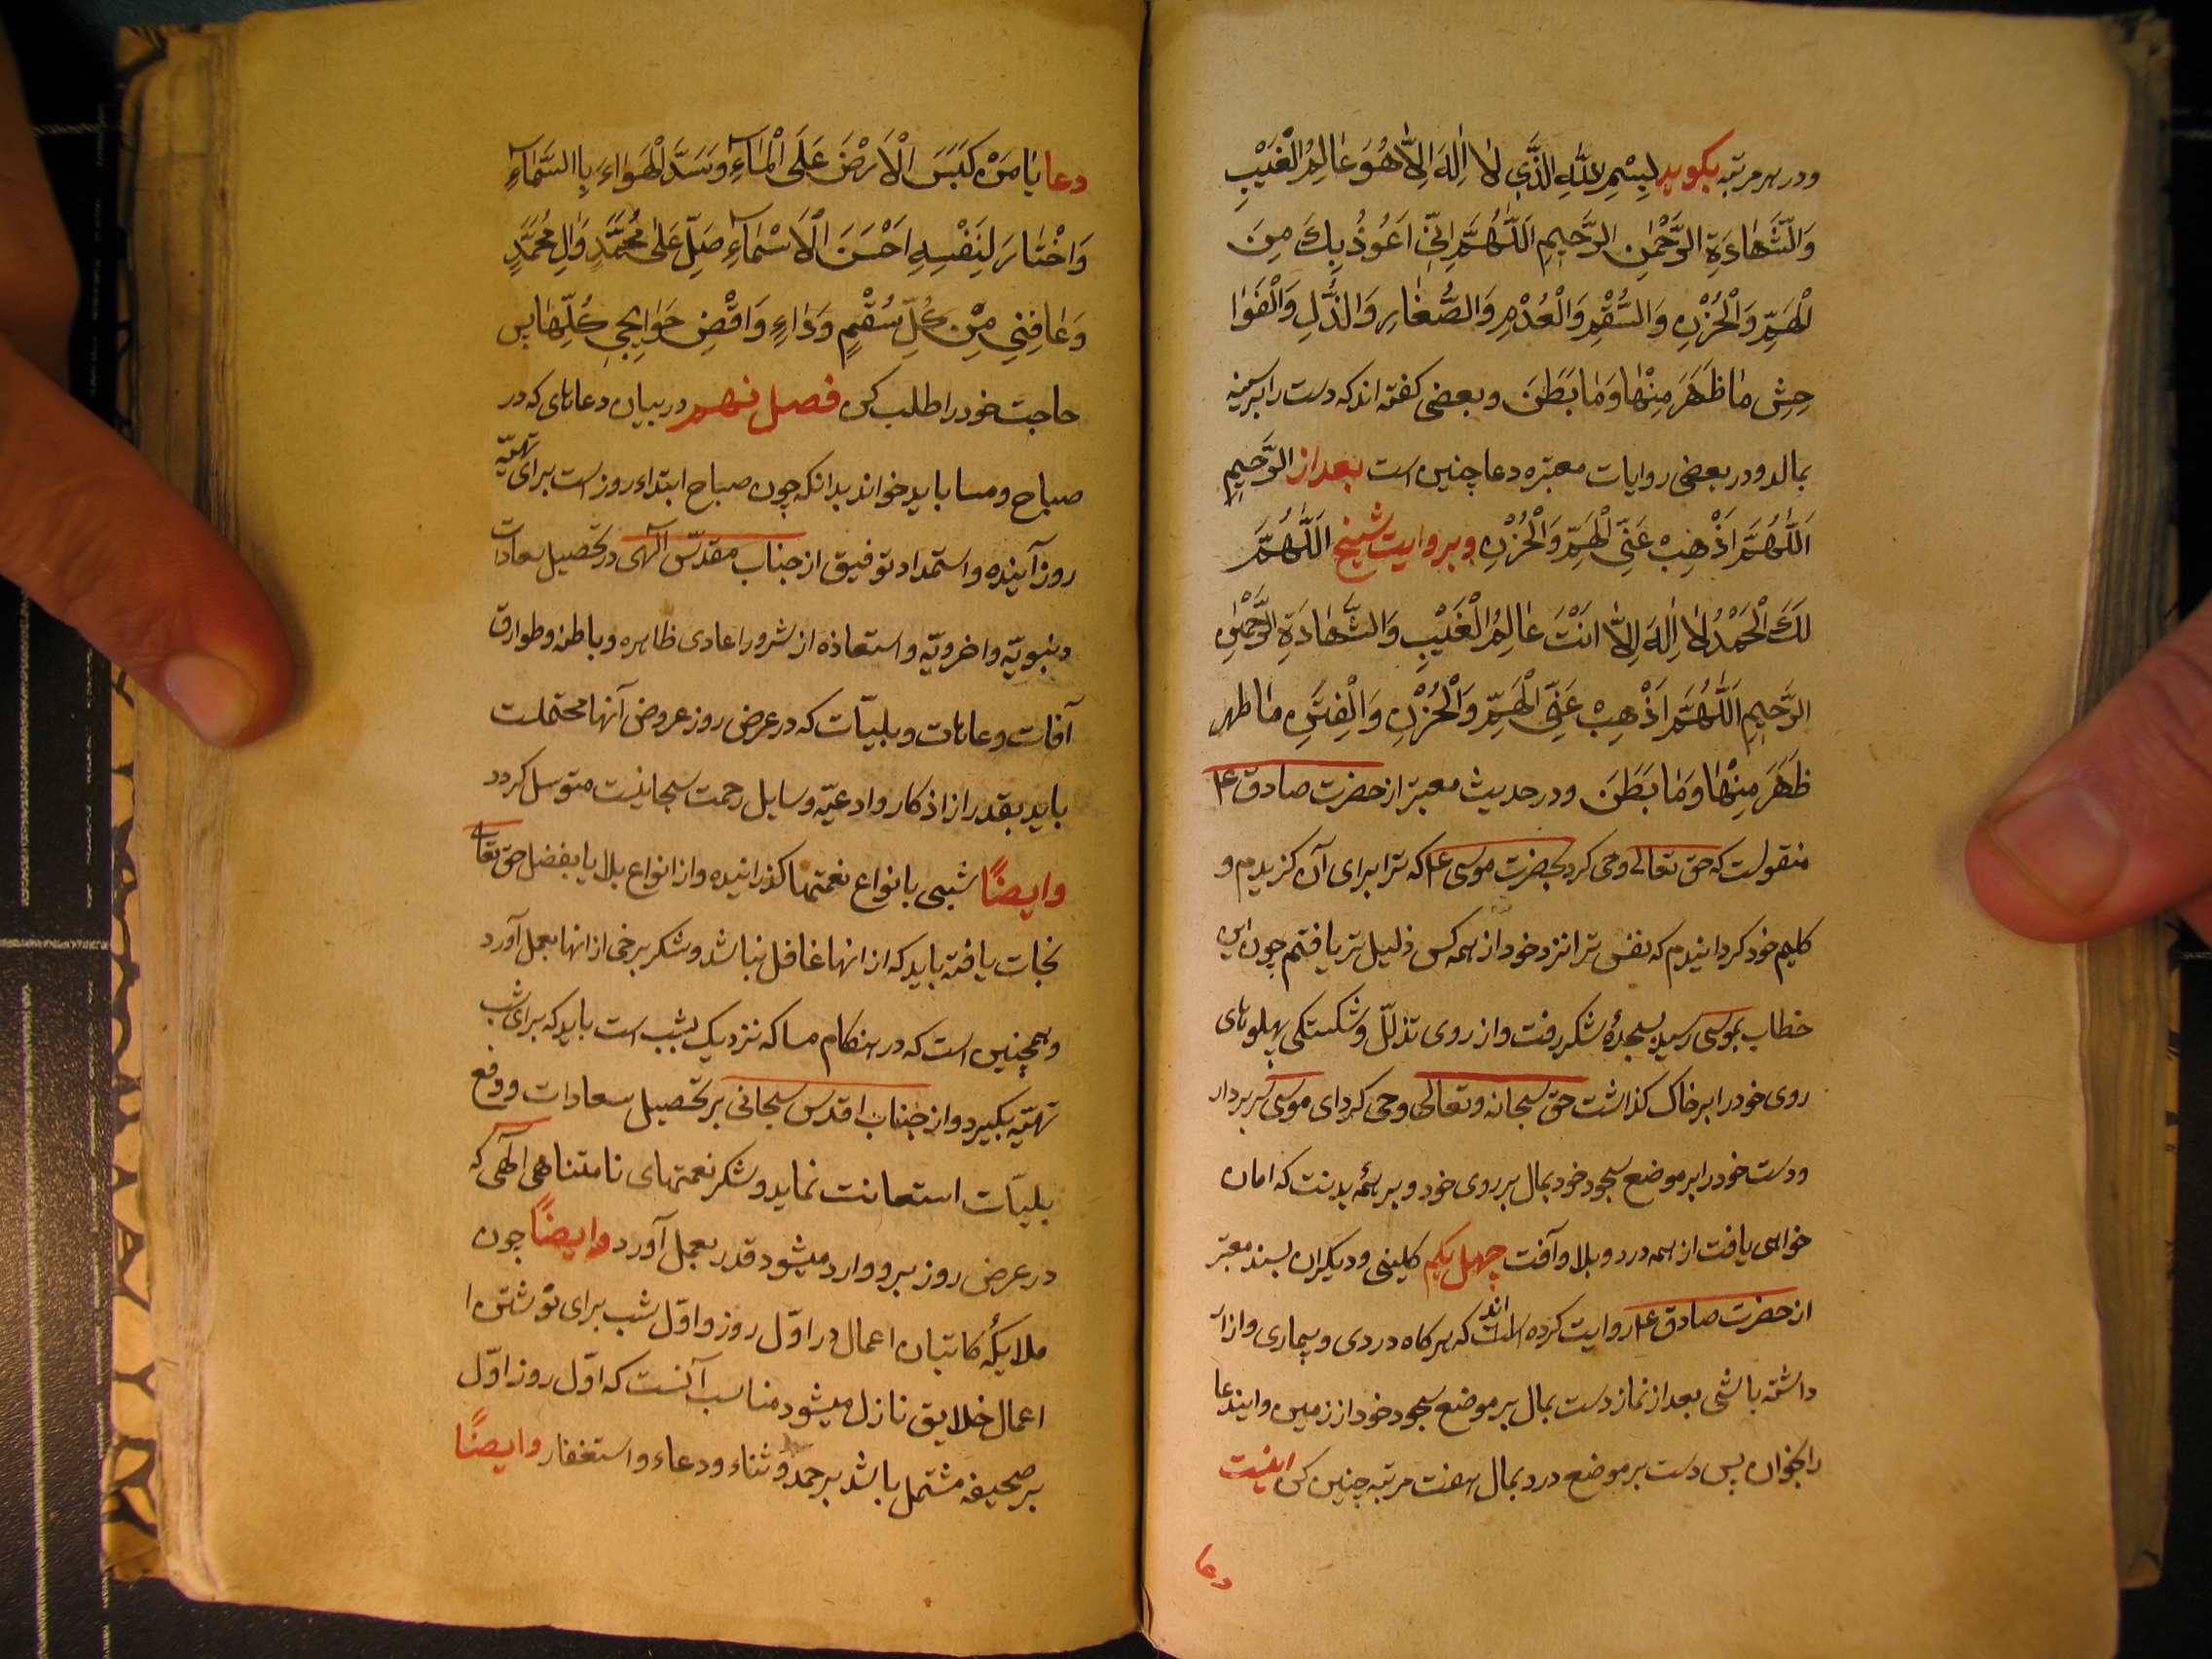 ودر هر مرتبه بكويد بِسْمِ اللهِ الَّذَّبي لاٰ اِلٰهَ اِلاّٰ هُوَ عٰالِمُ الْغَيْبِ
وَالشَّهٰادَةِ الرَّحْمٰنِ الرَّحٖيمِ اَللّٰهُمَّ اِنّٖي اَعُوذُ بِكَ مِنَ
الْهَمِّ وَالْحُزْنِ وَالسُّقْمِ وَالْعُدْمِ وَالصُّغٰارِ وَالذُّلِ وَالْفَوٰا
حِشِ مٰا ظَهَرَ مِنْهٰا وَمٰا بَطَنَ وبعضى كفته اند كه دست را بر سينه
بمالد ودر بعضى روايات معتبره دعا چنين است بعد از الرَّحٖيمِ
اَللّٰهُمَّ اَذْهِبْ عَنّٖي الْهَمِّ وَالْحُزْنِ وبروايت شيخ اَللّٰهُمَّ
لَكَ الْحَمْدُ لاٰ اِلٰهَ اِلاّٰ اَنْتَ عٰالِمُ الْغَيْبِ وَالشَّهٰادَةِ الرَّحْمٰنِ
الرَّحٖيمِ اَللّٰهُمَّ اَذْهِبْ عَنّٖى الْهَمِّ وَالْحُزْنِ وَالْفِتَنِ مٰا ظهر
ظَهَرَ مِنْهٰا وَمٰا بَطَنَ ودر حديث معتبر از حضرت صادق ع
منقولست كه حق تعالى وحى كرد بحضرت موسى ع كه ترا براى آن كزيدم و
كليم خود كردانيدم كه نفس ترا نزد خود از همه كس ذليل تر يافتم چون اين
خطاب بموسى رسيد بسجدهٔ شكر رفت واز روى تذلّل وشكستكى پهلوهاى
روى خود را بر خاك كذاشت حق سبحانه وتعالى وحى كرد اى موسى سر بردار
ودست خود را بر موضع سجود خود بمال بر روى خود وبر همهٔ بدنت كه امان
خواهى يافت از همه درد وبلا وآفت چهل يكم كلينى وديكران بسند معتبر
از حضرت صادق ع روايت كرده اند كه هر كاه دردى وبيمارى وازار
داشته باشى بعد از نماز دست بمال بر موضع سجود خود از زمين واين دعا
را بخوان پس دست بر موضع درد بمال هفت مرتبه چنين كن اينست
دعا
دعا يٰا مَنْ كَبَسَ الْاَرْضَ عَلَى الْمٰآءِ وَسَدَّ الْهَوٰاءَ بِاالسَّمٰآءِ
وَاخْتٰارَ لِنَفْسِهِ اَحْسَنَ الْاَسْمٰآءِ صَلِّ عَلىٰ مُحَمَّدٍ وَالِ مُحَمَّدٍ
وَعٰافِنِي مِنْ كُلِّ سُقْمٍ وَدٰاءٍ وَاقْضِ حَوٰايِجِي كُلِّهٰا پس
حاجت خود را طلب كن فصل نهم در بيان دعاهاى كه در
صباح ومسا بايد خواند بدانكه چون صباح ابتداء روز است براى تهيّه
روز آينده واستمداد توفيق از جناب مقدّس الٓهى در تحصيل سعادات
دنيويّه واخرويّه واستعاذه از شرور اعادى ظاهره وباطن وطوارق
آفات وعاهات وبليّات كه در عرض روز عروض آنها محتملست
بايد بقدر از اذكار وادعيّه وسايل رحمت سبحانيست متوسل كردد
وايضًا شبى بانواع نعمتها كذرانيده واز انواع بلايا بفضل حق تعالى
نجات يافته بايد كه از انها غافل نباشد وشكر برخى از انها بعمل آورد
وهمچنين است كه در هنكام مسا كه نزديك بشب است بايد كه براى شب
تهيّه بكيرد واز جناب اقدس سبحانى بر تحصيل سعادات ودفع
بليّات استعانت نمايد وشكر نعمتهاى نامتناهى الٓهى كه
در عرض روز برو وارد ميشود قدر بعمل آورد وايضًا چون
ملايكهٔ كاتبان اعمال در اوّل روز واوّل شب براى نوشتن ا
اعمال خلايق نازل ميشود مناسب آنست كه اوّل روز اوّل
بر صحيفه مشتمل باشد بر حمد وثناء ودعاء واستغفار وايضًا